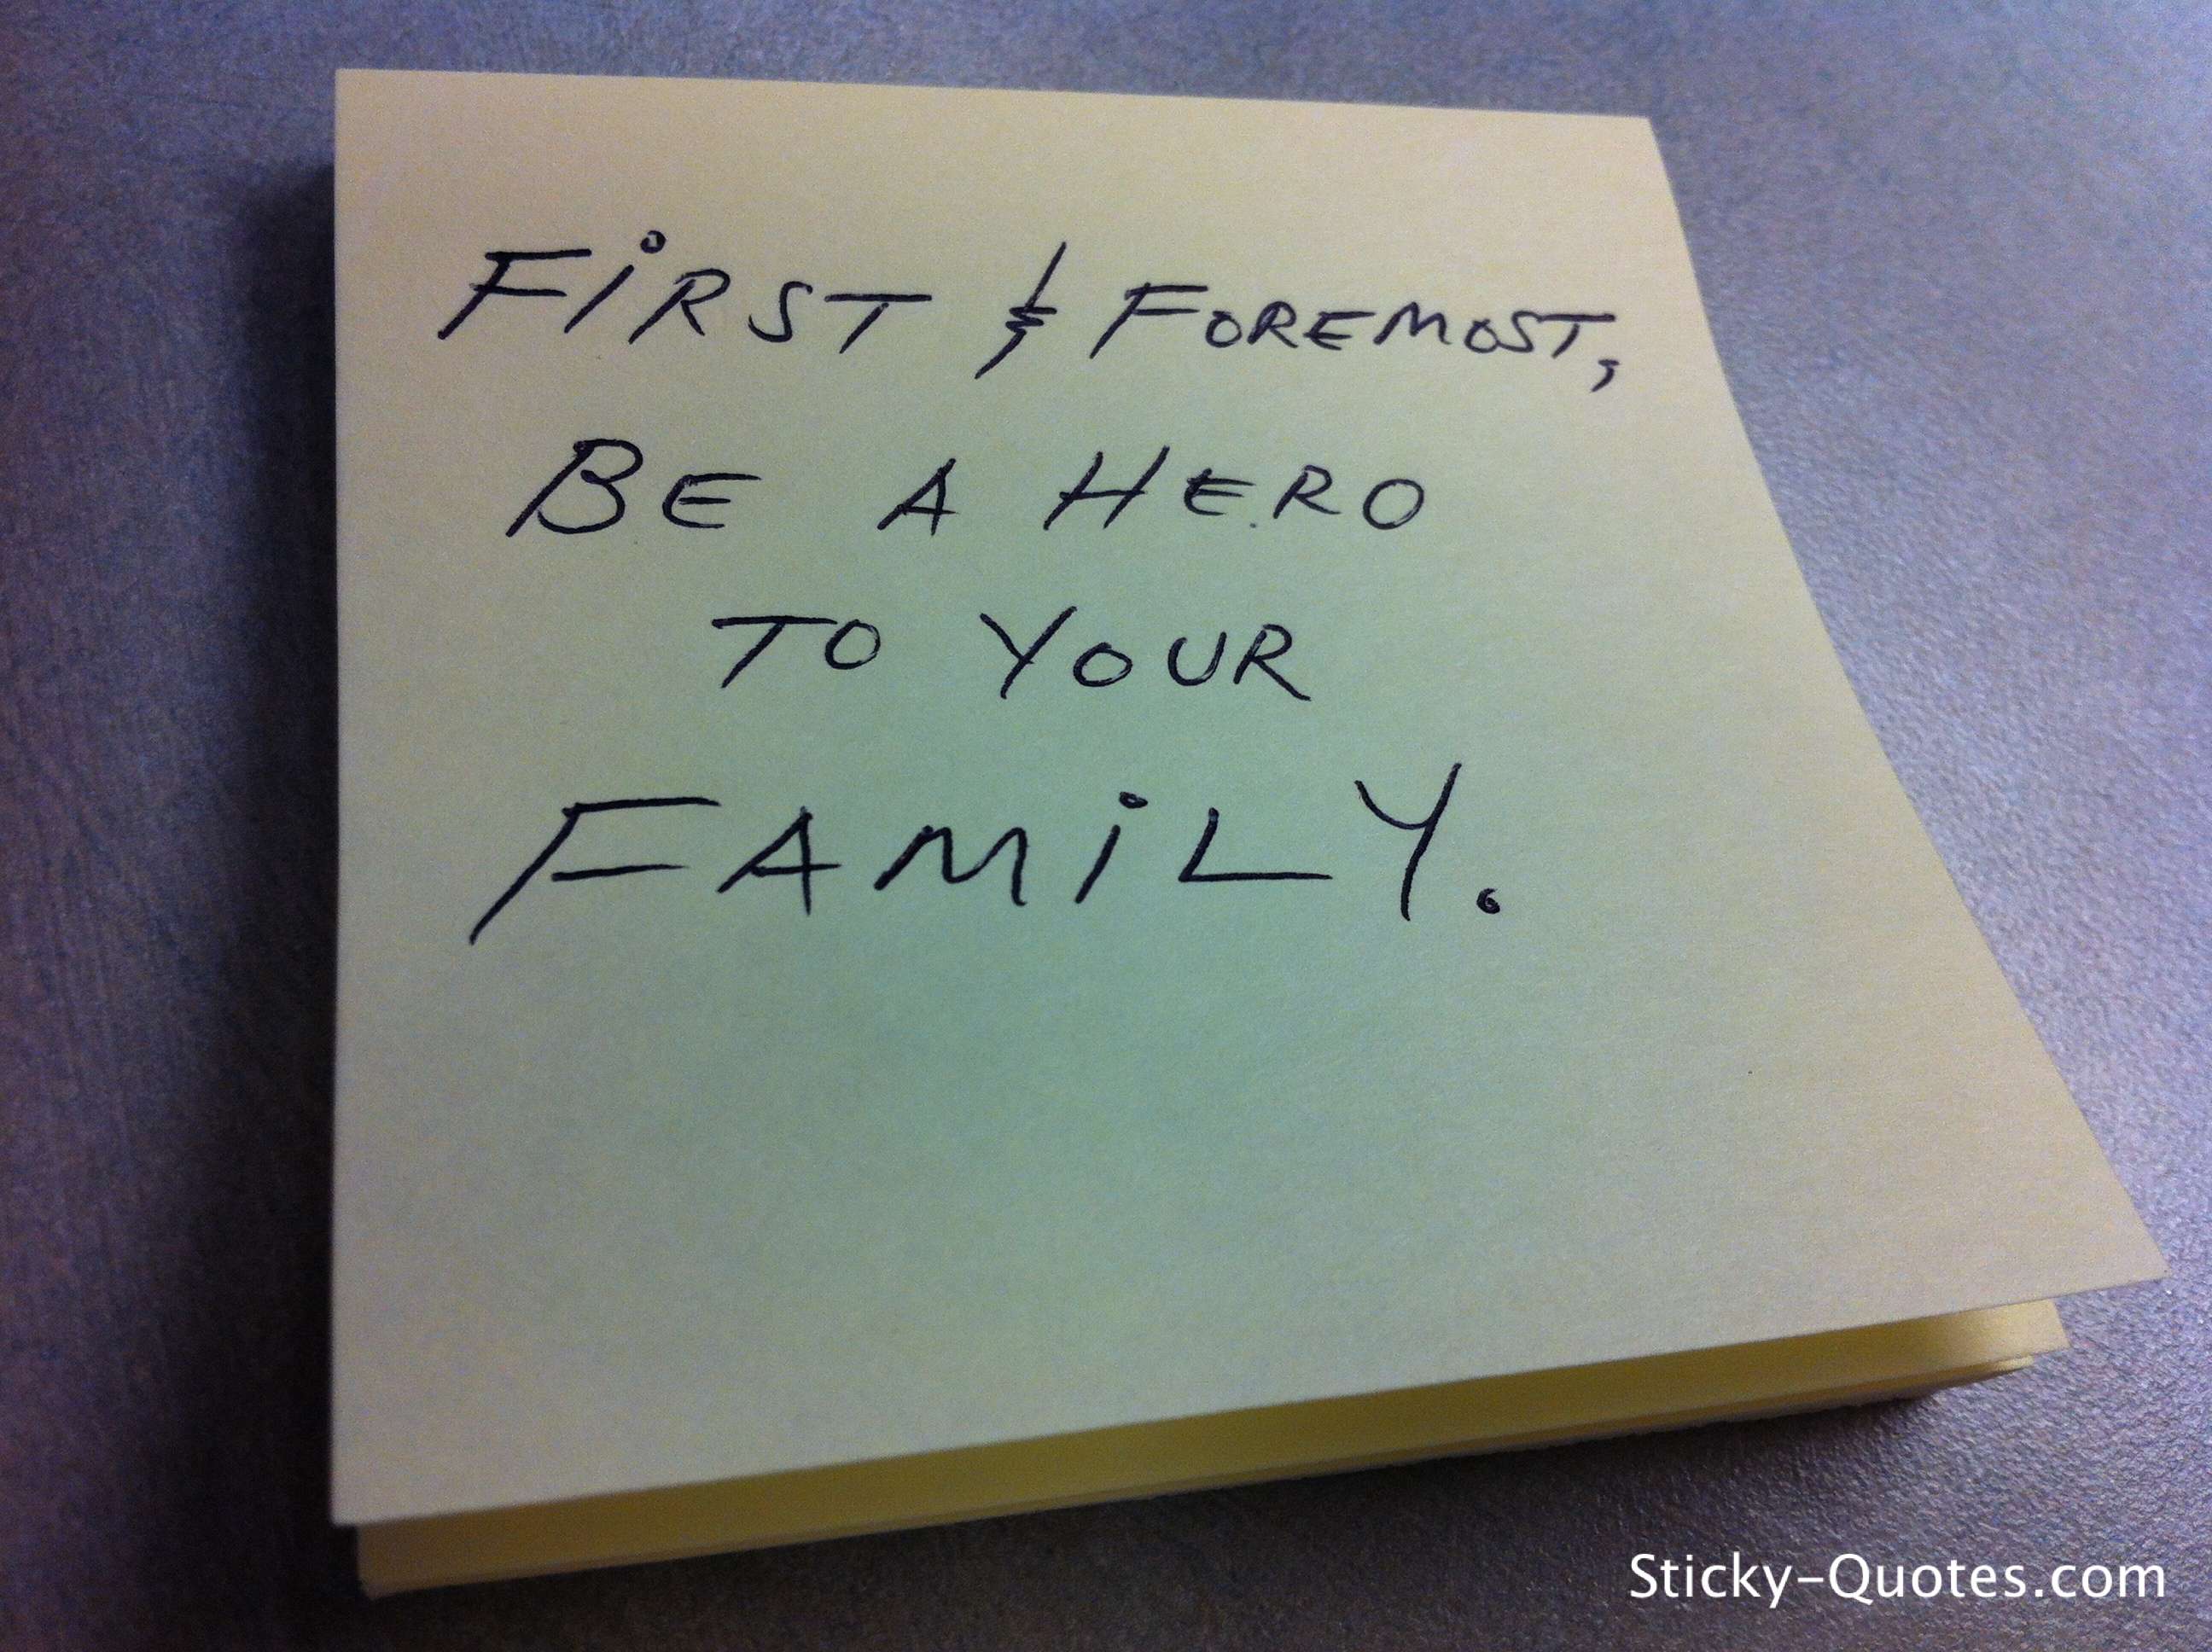 FiRST & FOREMOST,
BE A HERO
TO YOUR
FAMiLY.
Sticky-Quotes.com